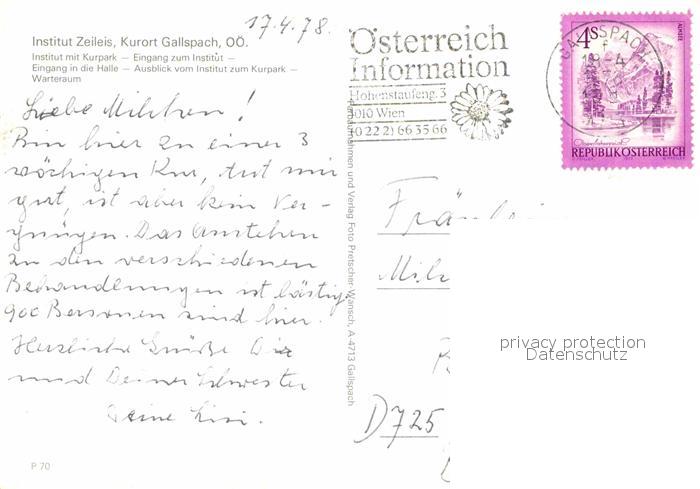 17.4.78.
Institut Zeileis, Kurort Gallspach, OÖ.
Institut mit Kurpark — Eingang zum Institut —
Eingang in die Halle — Ausblick vom Institut zum Kurpark —
Warteraum
Liebe Milchen!
Bin hier zu einer 3
wöchigen Kur, tut mir
gut, ist aber kein Ver-
gnügen. Das Anstehen
zu den verschiedenen
Behandlungen ist lästig.
900 Personen sind hier.
Herzliche Grüße Dir
und Deiner Schwester
Deine Lisi.
P 70
Österreich
Information
Hohenstaufeng. 3
1010 Wien
(0 22 2) 66 35 66
GALLSPACH
4S
ALMSEE
REPUBLIK ÖSTERREICH
und Verlag Foto Pretscher-Wänsch, A-4713 Gallspach
Fräulein
Mil
D725
privacy protection
Datenschutz